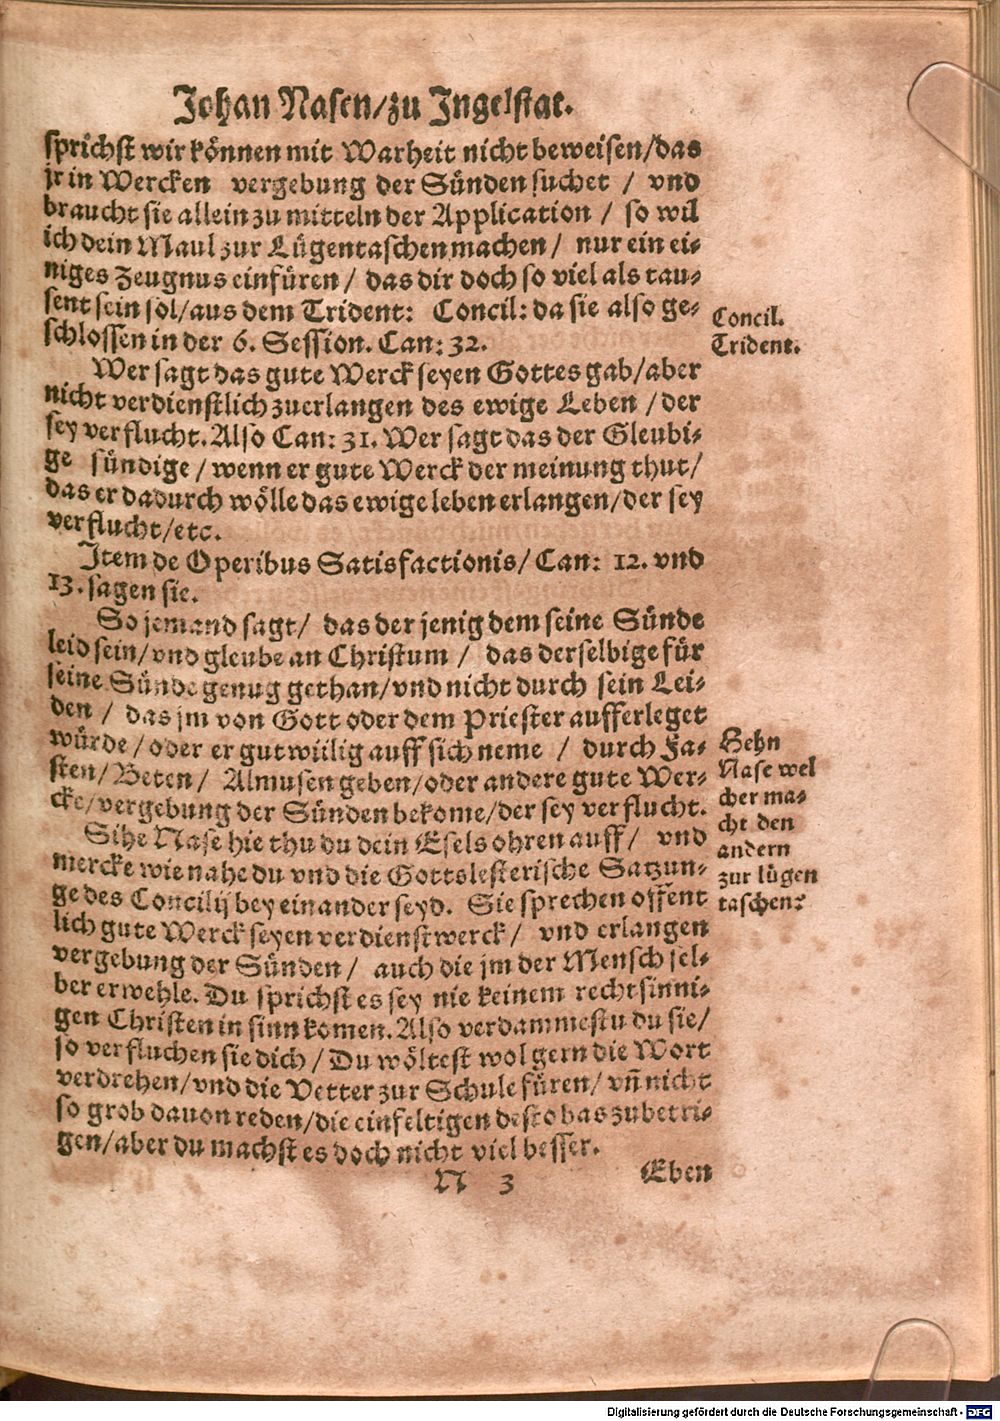 Johan Nasen/zu Jngelstat.
sprichst wir können mit Warheit nicht beweisen/das
jr in Wercken vergebung der Sünden suchet / vnd
braucht sie allein zu mitteln der Application / so wil
ich dein Maul zur Lügentaschen machen / nur ein ei-
niges Zeugnus einfüren / das dir doch so viel als tau-
sent sein sol/aus dem Trident: Concil: da sie also ge-
schlossen in der 6. Session. Can: 32.
Concil.
Trident.
Wer sagt das gute Werck seyen Gottes gab/aber
nicht verdienstlich zuerlangen des ewige Leben /der
sey verflucht. Also Can: 31. Wer sagt das der Gleubi-
ge sündige / wenn er gute Werck der meinung thut/
das er dadurch wölle das ewige leben erlangen/der sey
verflucht/etc.
Jtem de Operibus Satisfactionis/ Can: 12. vnd
13. sagen sie.
So jemand sagt/ das der jenig dem seine Sünde
leid sein/vnd gleube an Christum / das derselbige für
seine Sünde genug gethan/vnd nicht durch sein Lei-
den / das jm von Gott oder dem Priester aufferleget
würde /oder er gutwillig auff sich neme / durch Fa-
sten/Beten/ Almusen geben/oder andere gute Wer-
cke/vergebung der Sünden bekome/der sey verflucht.
Sihe Nase hie thu du dein Esels ohren auff/ vnd
mercke wie nahe du vnd die Gottslesterische Satzun-
ge des Concilij bey einander seyd. Sie sprechen offent
lich gute Werck seyen verdienstwerck/ vnd erlangen
vergebung der Sünden / auch die jm der Mensch sel-
ber erwehle. Du sprichst es sey nie keinem rechtsinni-
gen Christen in sinn komen. Also verdammestu du sie/
so verfluchen sie dich / Du wöltest wol gern die Wort
verdrehen/vnd die Vetter zur Schule füren/ vñ nicht
so grob dauon reden/die einfeltigen desto bas zubetri-
gen/aber du machst es doch nicht viel besser.
Sehn
Nase wel
cher ma-
cht den
andern
zur lügen
taschen?
N 3
Eben
Digitalisierung gefördert durch die Deutsche Forschungsgemeinschaft - DFG